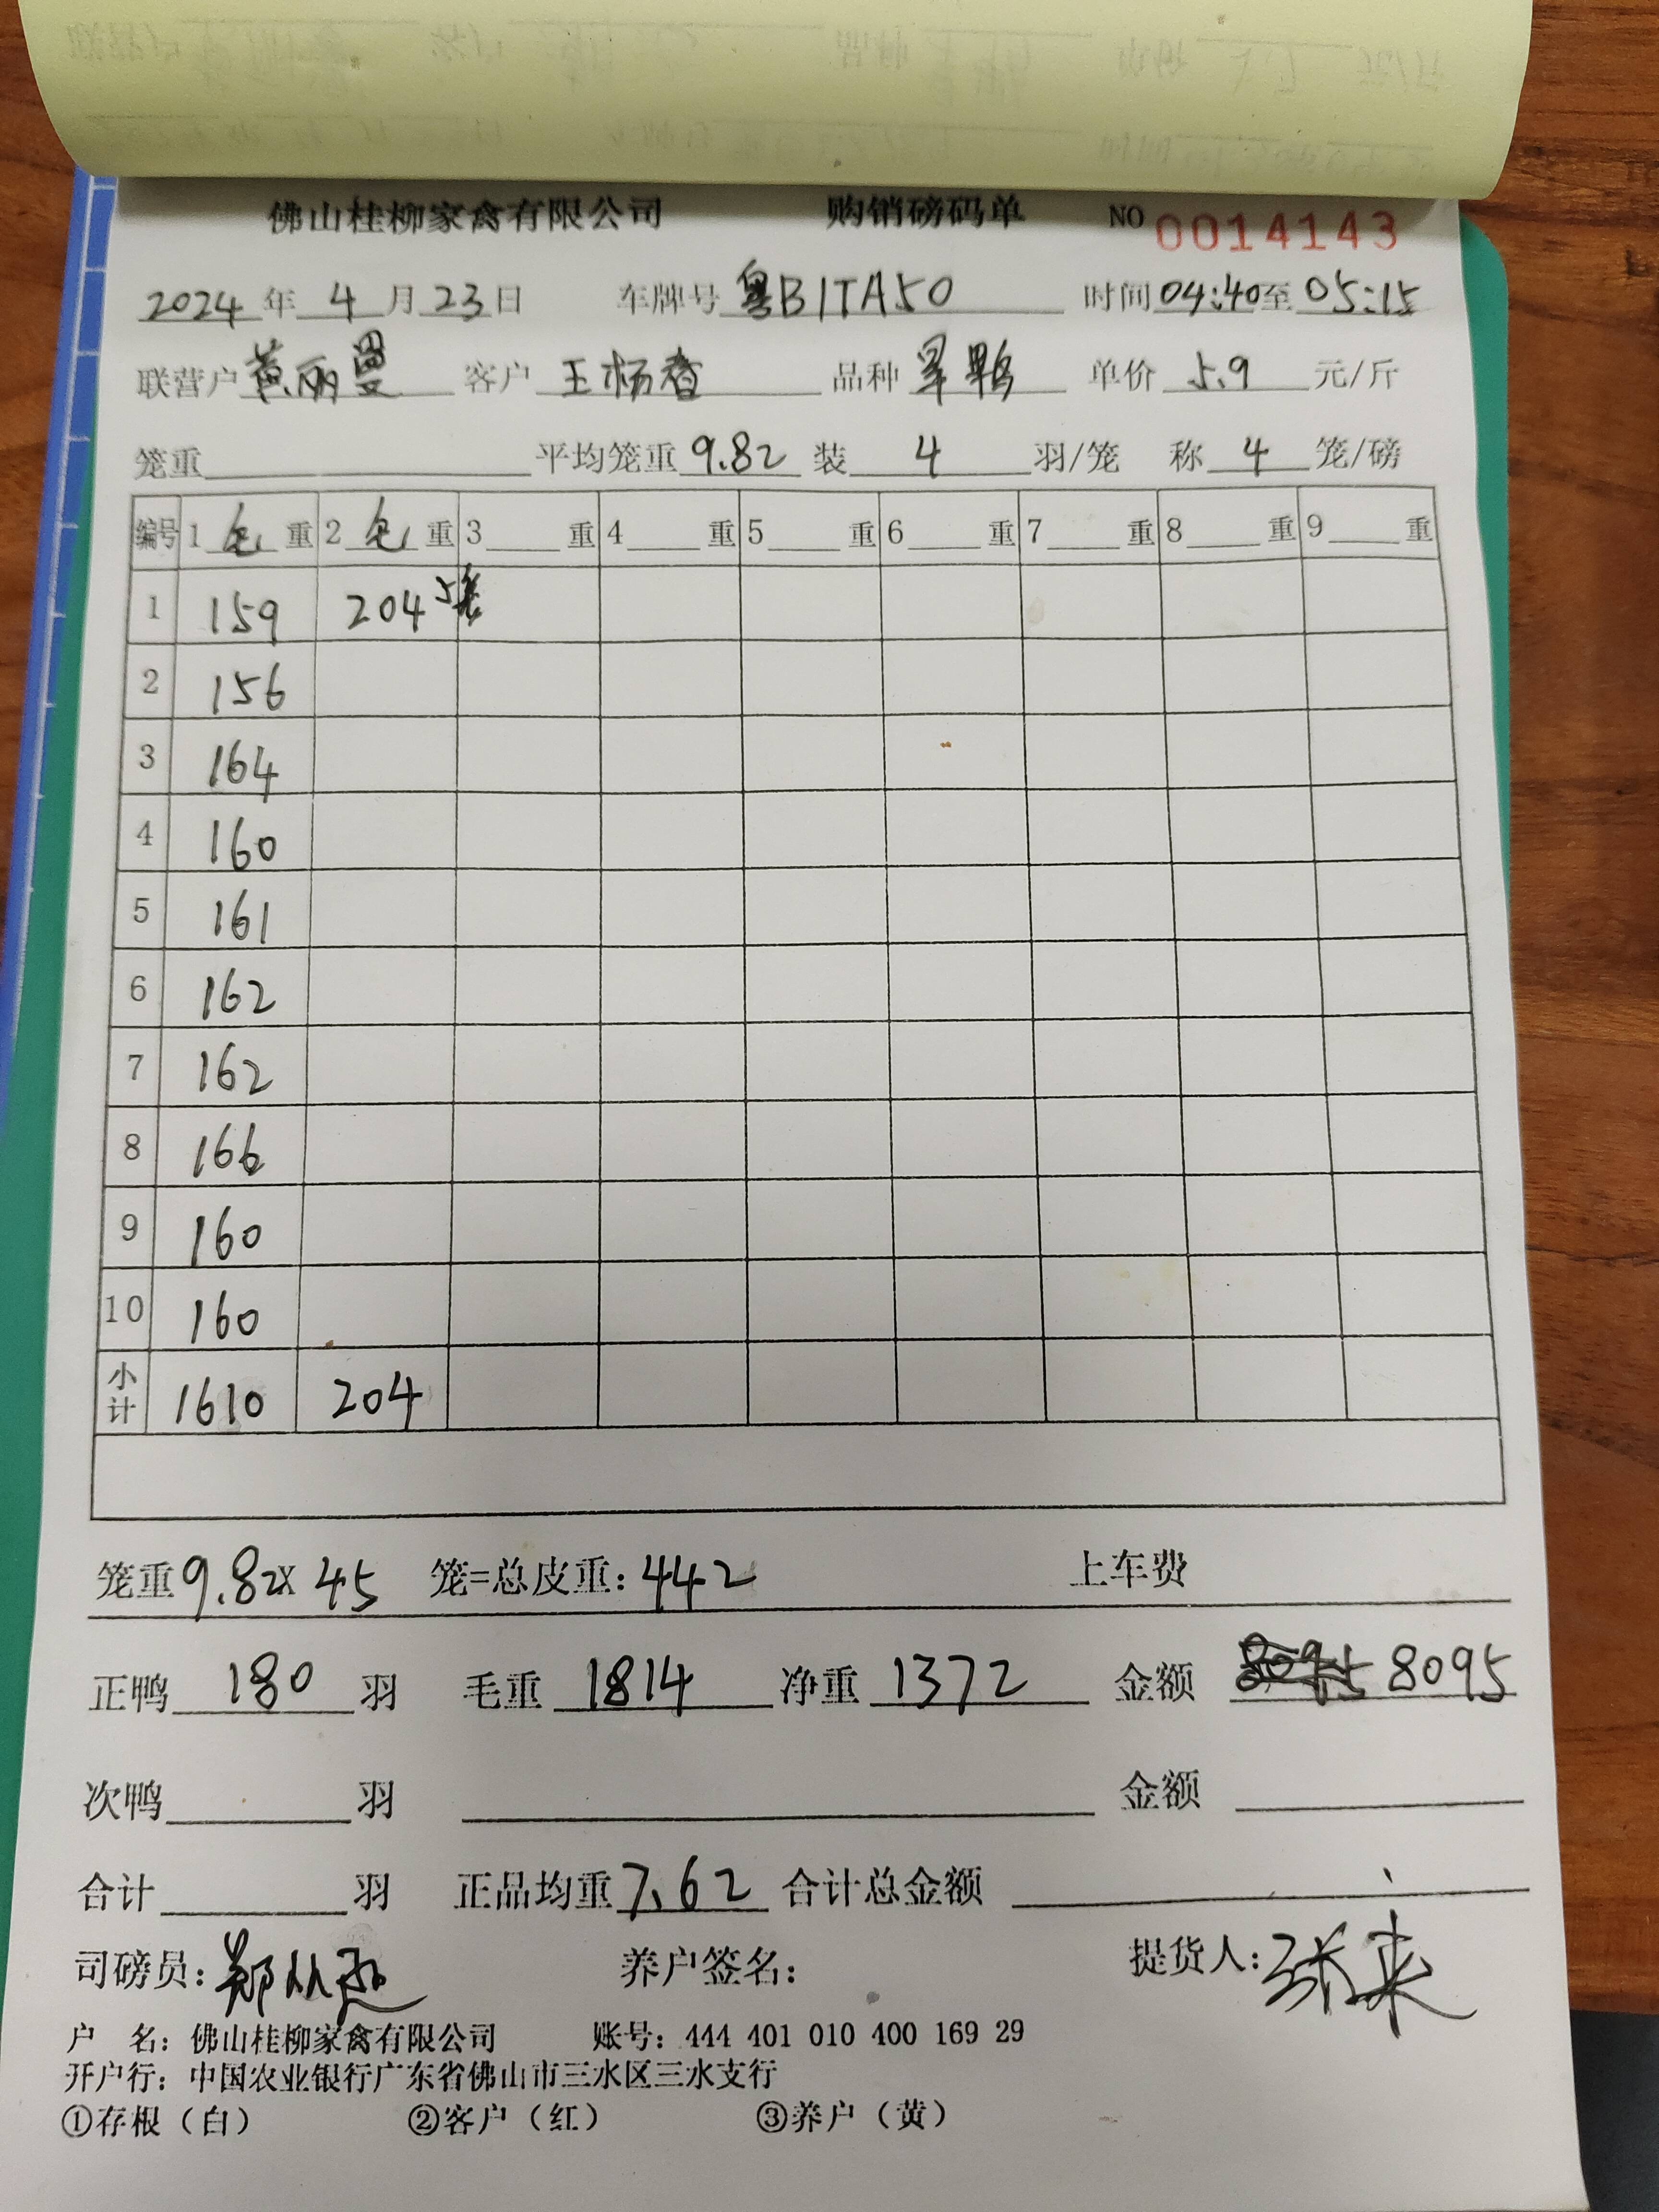 佛山桂柳家禽有限公司 购销磅码单 NO 0014143
2024年 4月23日 车牌号 粤B1TA50 时间04:40至05:15
联营户 黄丽曼 客户 王杨香 品种 旱鸭 单价 5.9 元/斤
笼重 平均笼重 9.82 装 4 羽/笼 称 4 笼/磅
编号 1 毛 重 2 毛 重 3 重 4 重 5 重 6 重 7 重 8 重 9 重
1 159 204 5笼
2 156
3 164
4 160
5 161
6 162
7 162
8 166
9 160
10 160
小计 1610 204
笼重9.82X 45 笼=总皮重: 442 上车费
正鸭 180 羽 毛重 1814 净重 1372 金额 8095
次鸭 羽 金额
合计 羽 正品均重 7.62 合计总金额
司磅员: 养户签名: 提货人: 张来
户 名: 佛山桂柳家禽有限公司 账号: 444 401 010 400 169 29
开户行: 中国农业银行广东省佛山市三水区三水支行
①存根（白） ②客户（红） ③养户（黄）